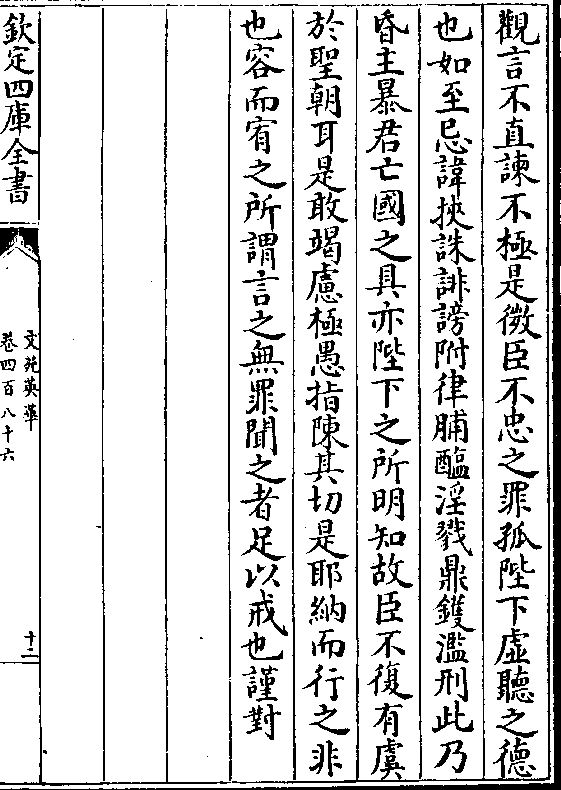 觀言不直諫不極是微臣不忠之罪孤陛下虛聽之德
也如至忌諱挾誅誹謗附律脯醢淫戮鼎鑊濫刑此乃
昏主暴君亡國之具亦陛下之所明知故臣不復有虞
於聖朝耳是敢竭慮極愚指陳其切是耶納而行之非
也容而宥之所謂言之無罪聞之者足以戒也謹對
欽定四庫全書
文苑英華
卷四百八十六
十二